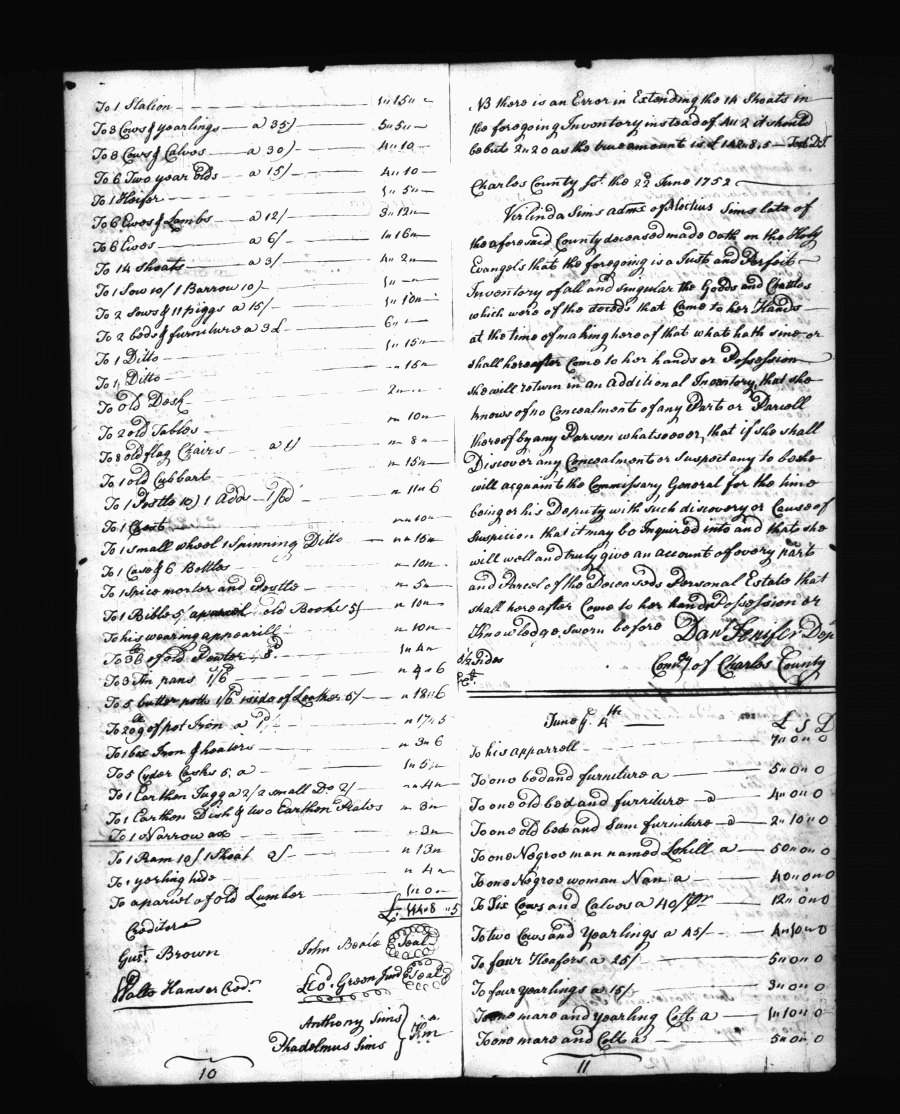 To 1 Stalion 1 " 15 "
To 3 Cows & yearlings a 35/ 5 " 5 "
To 3 Cows & Calves a 30) 4 " 10
To 6 Two year olds a 15/ 4 " 10
To 1 Heifer 1 " 5 "
To 6 Ewes & Lambs a 12/ 3 " 12
To 6 Ewes a 6/ 1 " 16
To 14 Shoats a 3/ 4 " 2
To 1 Sow 10/ 1 Barrow 10) 1 "
To 2 Sows & 11 piggs a 15/ 1 " 10
To 2 beds & furniture a 3£ 6 "
To 1 Ditto 1 " 15
To 1 Ditto " 15
To old Desk 2 "
To 2 old Tables " 10
To 8 old flag Chairs a 1/ " 8
To 1 old Cubbart " 15
To 1 Postle 10) 1 Adds " 11 " 6
To 1 Chest " 10
To 1 small wheel 1 Spinning Ditto " 15
To 1 Case & 6 Bottles " 10
To 1 Spice morter and Postle " 5
To 1 Bible 5/ old Books 5/ " 10
To his wearing appearill " 10
To of old Pewter 1 " 4
To 3 Tin pans 1/6 " 4 " 6
To 5 butter potts 1/6 sides of Leather 5/ " 18 " 6
To 209 of pot Iron a " 17 " 5
To 1 box Iron & heaters " 3 " 6
To 5 Cyder Casks 5, a 1 " 5
To 1 Earthen Jugg a 2/ 2 small Do 2/ " 4
To 1 Earthen Dish & two Earthen Plates " 3
To 1 Narrow ax " 3
To 1 Ram 10/ 1 Shoat " 13
To 1 yerling hide " 4
To a parcel of old Lumber 1 " 0
£ 144 " 8 " 5
Creditors
Gust. Brown John Beale Seal
Walto Hanser Cred.r Leod. Green Junr Seal
Anthony Sims } Kin
Thadelmus Sims
10
NB there is an Error in Extending the 14 Shoats in
the foregoing Inventory instead of 4 " 2 it should
be but 2 " 20 as the true amount is £ 142 " 8 " 5
Charles County Sst. the 22d June 1752
Verlinda Sims adms. of Sims late of
the aforesaid County deceased made Oath on the Holy
Evangels that the foregoing is a Just and Perfect
Inventory of all and singular the Goods and Chattles
which were of the deceds that Came to her Hands
at the time of making hereof that what hath since or
shall hereafter Come to her hands or Possession
she will return in an Additional Inventory, that she
knows of no Concealment of any Part or Parcell
thereof by any Person whatsoever, that if she shall
Discover any Concealment or Suspect any to be she
will acquaint the Commissary General for the time
being or his Deputy with such discovery or Cause of
Suspicion that it may be Inquired into and that she
will well and truly give an account of every part
and Parcel of the Deceaseds Personal Estate that
shall hereafter Come to her hands Possession or
Knowledge, Sworn before Dan Jenifer Dep
Comry of Charles County
June ye 4th £ S D
To his apparrell 7 " 0 " 0
To one bed and furniture a 5 " 0 " 0
To one old bed and furriture a 4 " 0 " 0
To one old bed and Sum furniture a 2 " 10 " 0
To one Negroe man named a 50 " 0 " 0
To one Negroe woman Nan a 40 " 0 " 0
To Six Cows and Calves a 40/ 12 " 0 " 0
To two Cows and Yearlings a 45/ 4 " 10 " 0
To four Heafers a 25/ 5 " 0 " 0
To four yearlings a 15/ 3 " 0 " 0
To one mare and yearling Colt a 1 " 10 " 0
To one mare and Colt a 5 " 0 " 0
11